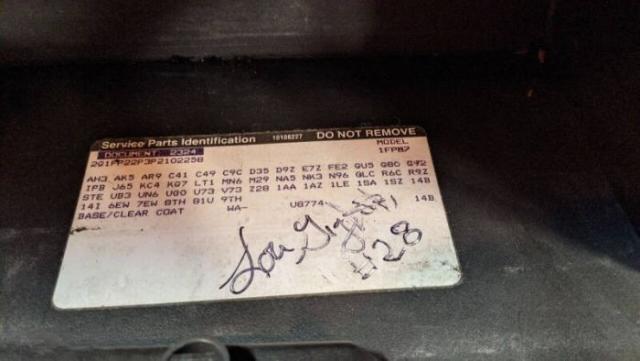 Service Parts Identification 10106227 DO NOT REMOVE
DOCUMENT: 2324 MODEL
2G1FP22P3P2102258 1FP87
AH3 AK5 AR9 C41 C49 C9C D35 D9Z E7Z FE2 GU5 G80 G92
IPB J65 KC4 KQ7 LT1 MN6 M29 NA5 NK3 N96 QLC R6C R9Z
STE UB3 UN6 U0O U73 V73 Z28 1AA 1AZ 1LE 1SA 1SZ 14B
14I 6EW 7EW 8TH 81U 9TH
BASE/CLEAR COAT WA- U8774 14B
Lou
#28